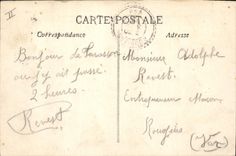 II
CARTE POSTALE
Correspondance
Adresse
Bonjour de Tarascon
où j'y ait passé
2 heures.
Revest
Monsieur Adolphe
Revest
Entrepreneur Maçon
Rougiers
(Var)